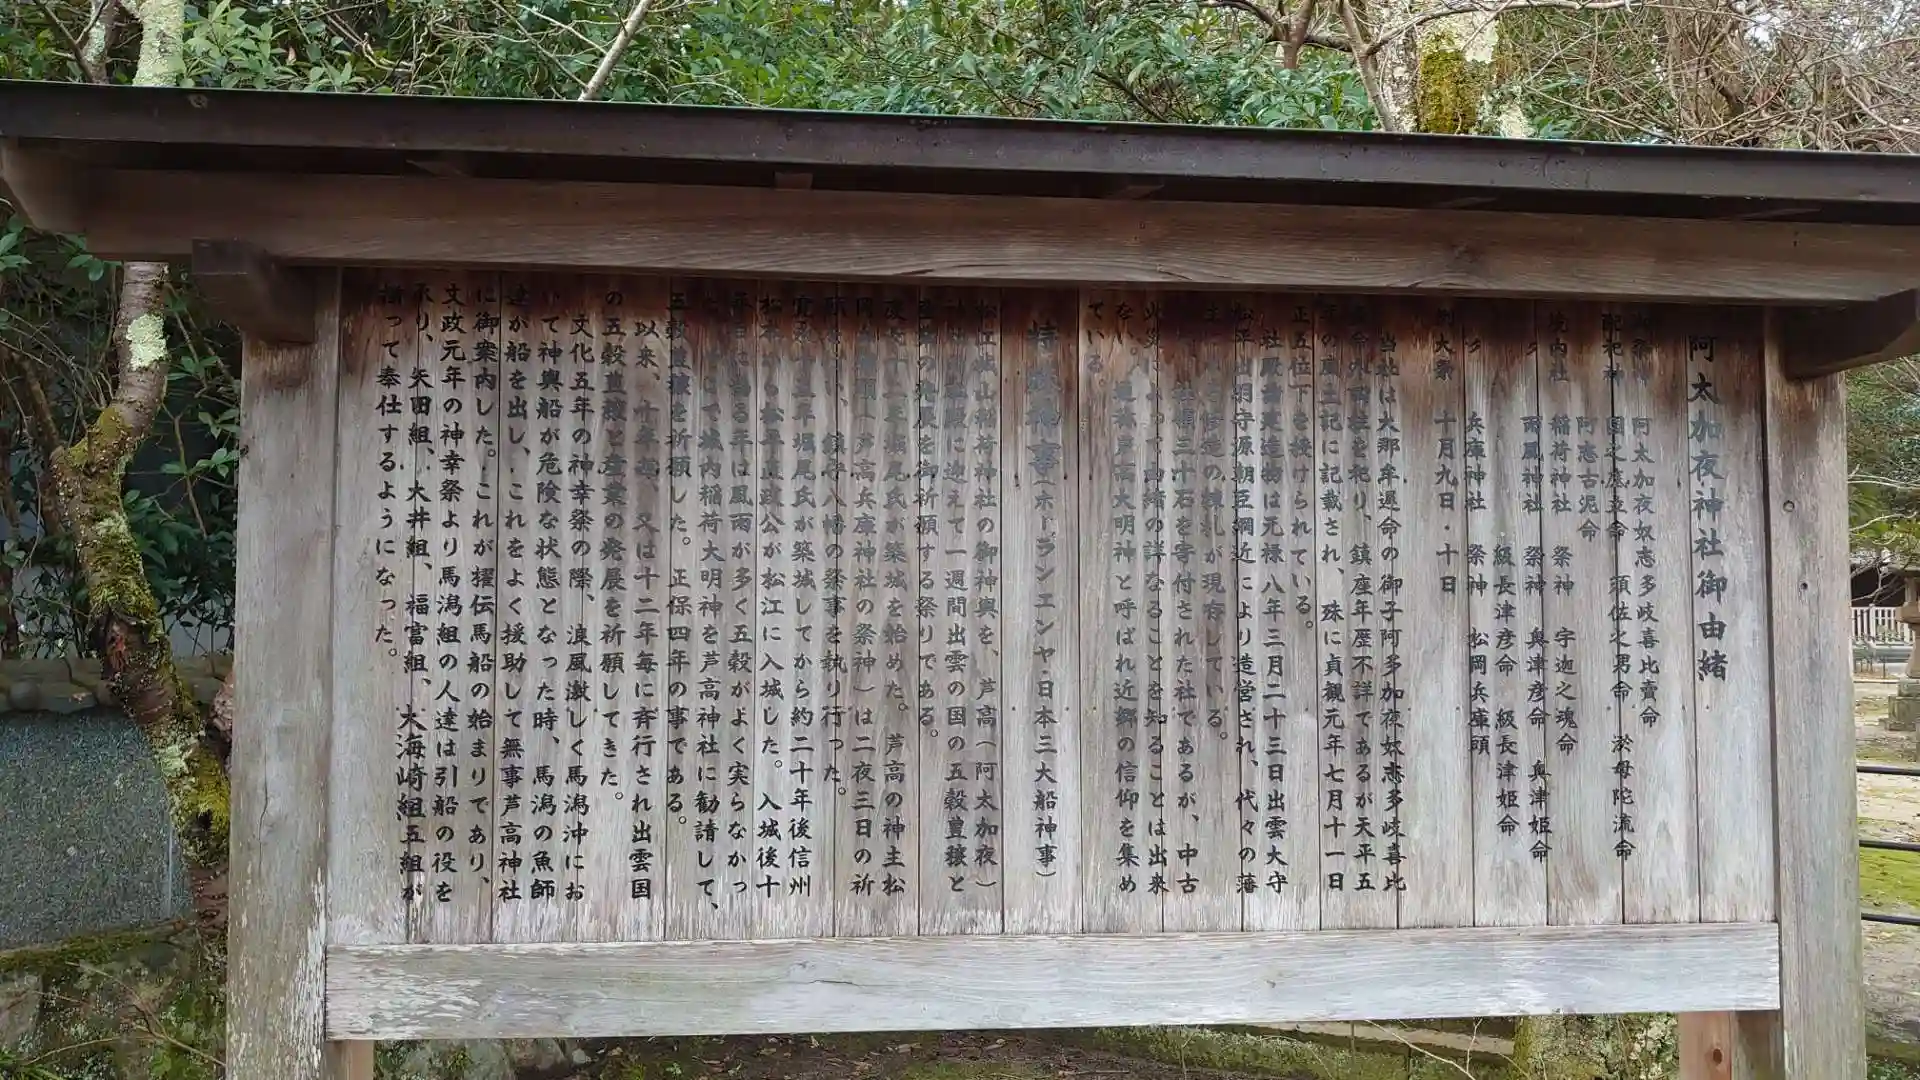 阿太加夜神社御由緒
主祭神 阿太加夜奴志多岐喜比賣命
配祀神 国之底立命 須佐之男命 淤母陀流命
阿志古泥命
境内社 稲荷神社 祭神 宇迦之魂命
〃 雨風神社 祭神 奥津彦命 奥津姫命
級長津彦命 級長津姫命
〃 兵庫神社 祭神 松岡兵庫頭
例大祭 十月九日・十日
当社は大那牟遅命の御子阿多加夜奴志多岐喜比
賣命外四柱を祀り、鎮座年歴不詳であるが天平五
年の風土記に記載され、殊に貞観元年七月十一日
正五位下を授けられている。
社殿諸建造物は元禄八年三月二十三日出雲大守
松平出羽守源朝臣綱近により造営され、代々の藩
主 修造の棟札が現存している。
社領三十石を寄付された社であるが、中古
火災によって由緒の詳なることを知ることは出来
ない。通称芦高大明神と呼ばれ近郷の信仰を集め
ている。
特殊神事(ホーランエンヤ・日本三大船神事)
松江城山稲荷神社の御神輿を、芦高(阿太加夜)
神社 殿に迎えて一週間出雲の国の五穀豊穣と
産業の発展を御祈願する祭りである。
慶長十二年堀尾氏が築城を始めた。芦高の神主松
岡兵庫頭(芦高兵庫神社の祭神)は二夜三日の祈
願 、鎮守八幡の祭事を執り行った。
寛永十五年堀尾氏が築城してから約二十年後信州
松本から松平直政公が松江に入城した。入城後十
年 に当る年は風雨が多く五穀がよく実らなかっ
た で城内稲荷大明神を芦高神社に勧請して、
五穀豊穣を祈願した。正保四年の事である。
以来、十年毎、又は十二年毎に斉行され出雲国
の五穀豊穣と産業の発展を祈願してきた。
文化五年の神幸祭の際、浪風激しく馬潟沖にお
いて神輿船が危険な状態となった時、馬潟の魚師
達が船を出し、これをよく援助して無事芦高神社
に御案内した。これが櫂伝馬船の始まりであり、
文政元年の神幸祭より馬潟組の人達は引船の役を
承り、矢田組、大井組、福富組、大海崎組五組が
揃って奉仕するようになった。